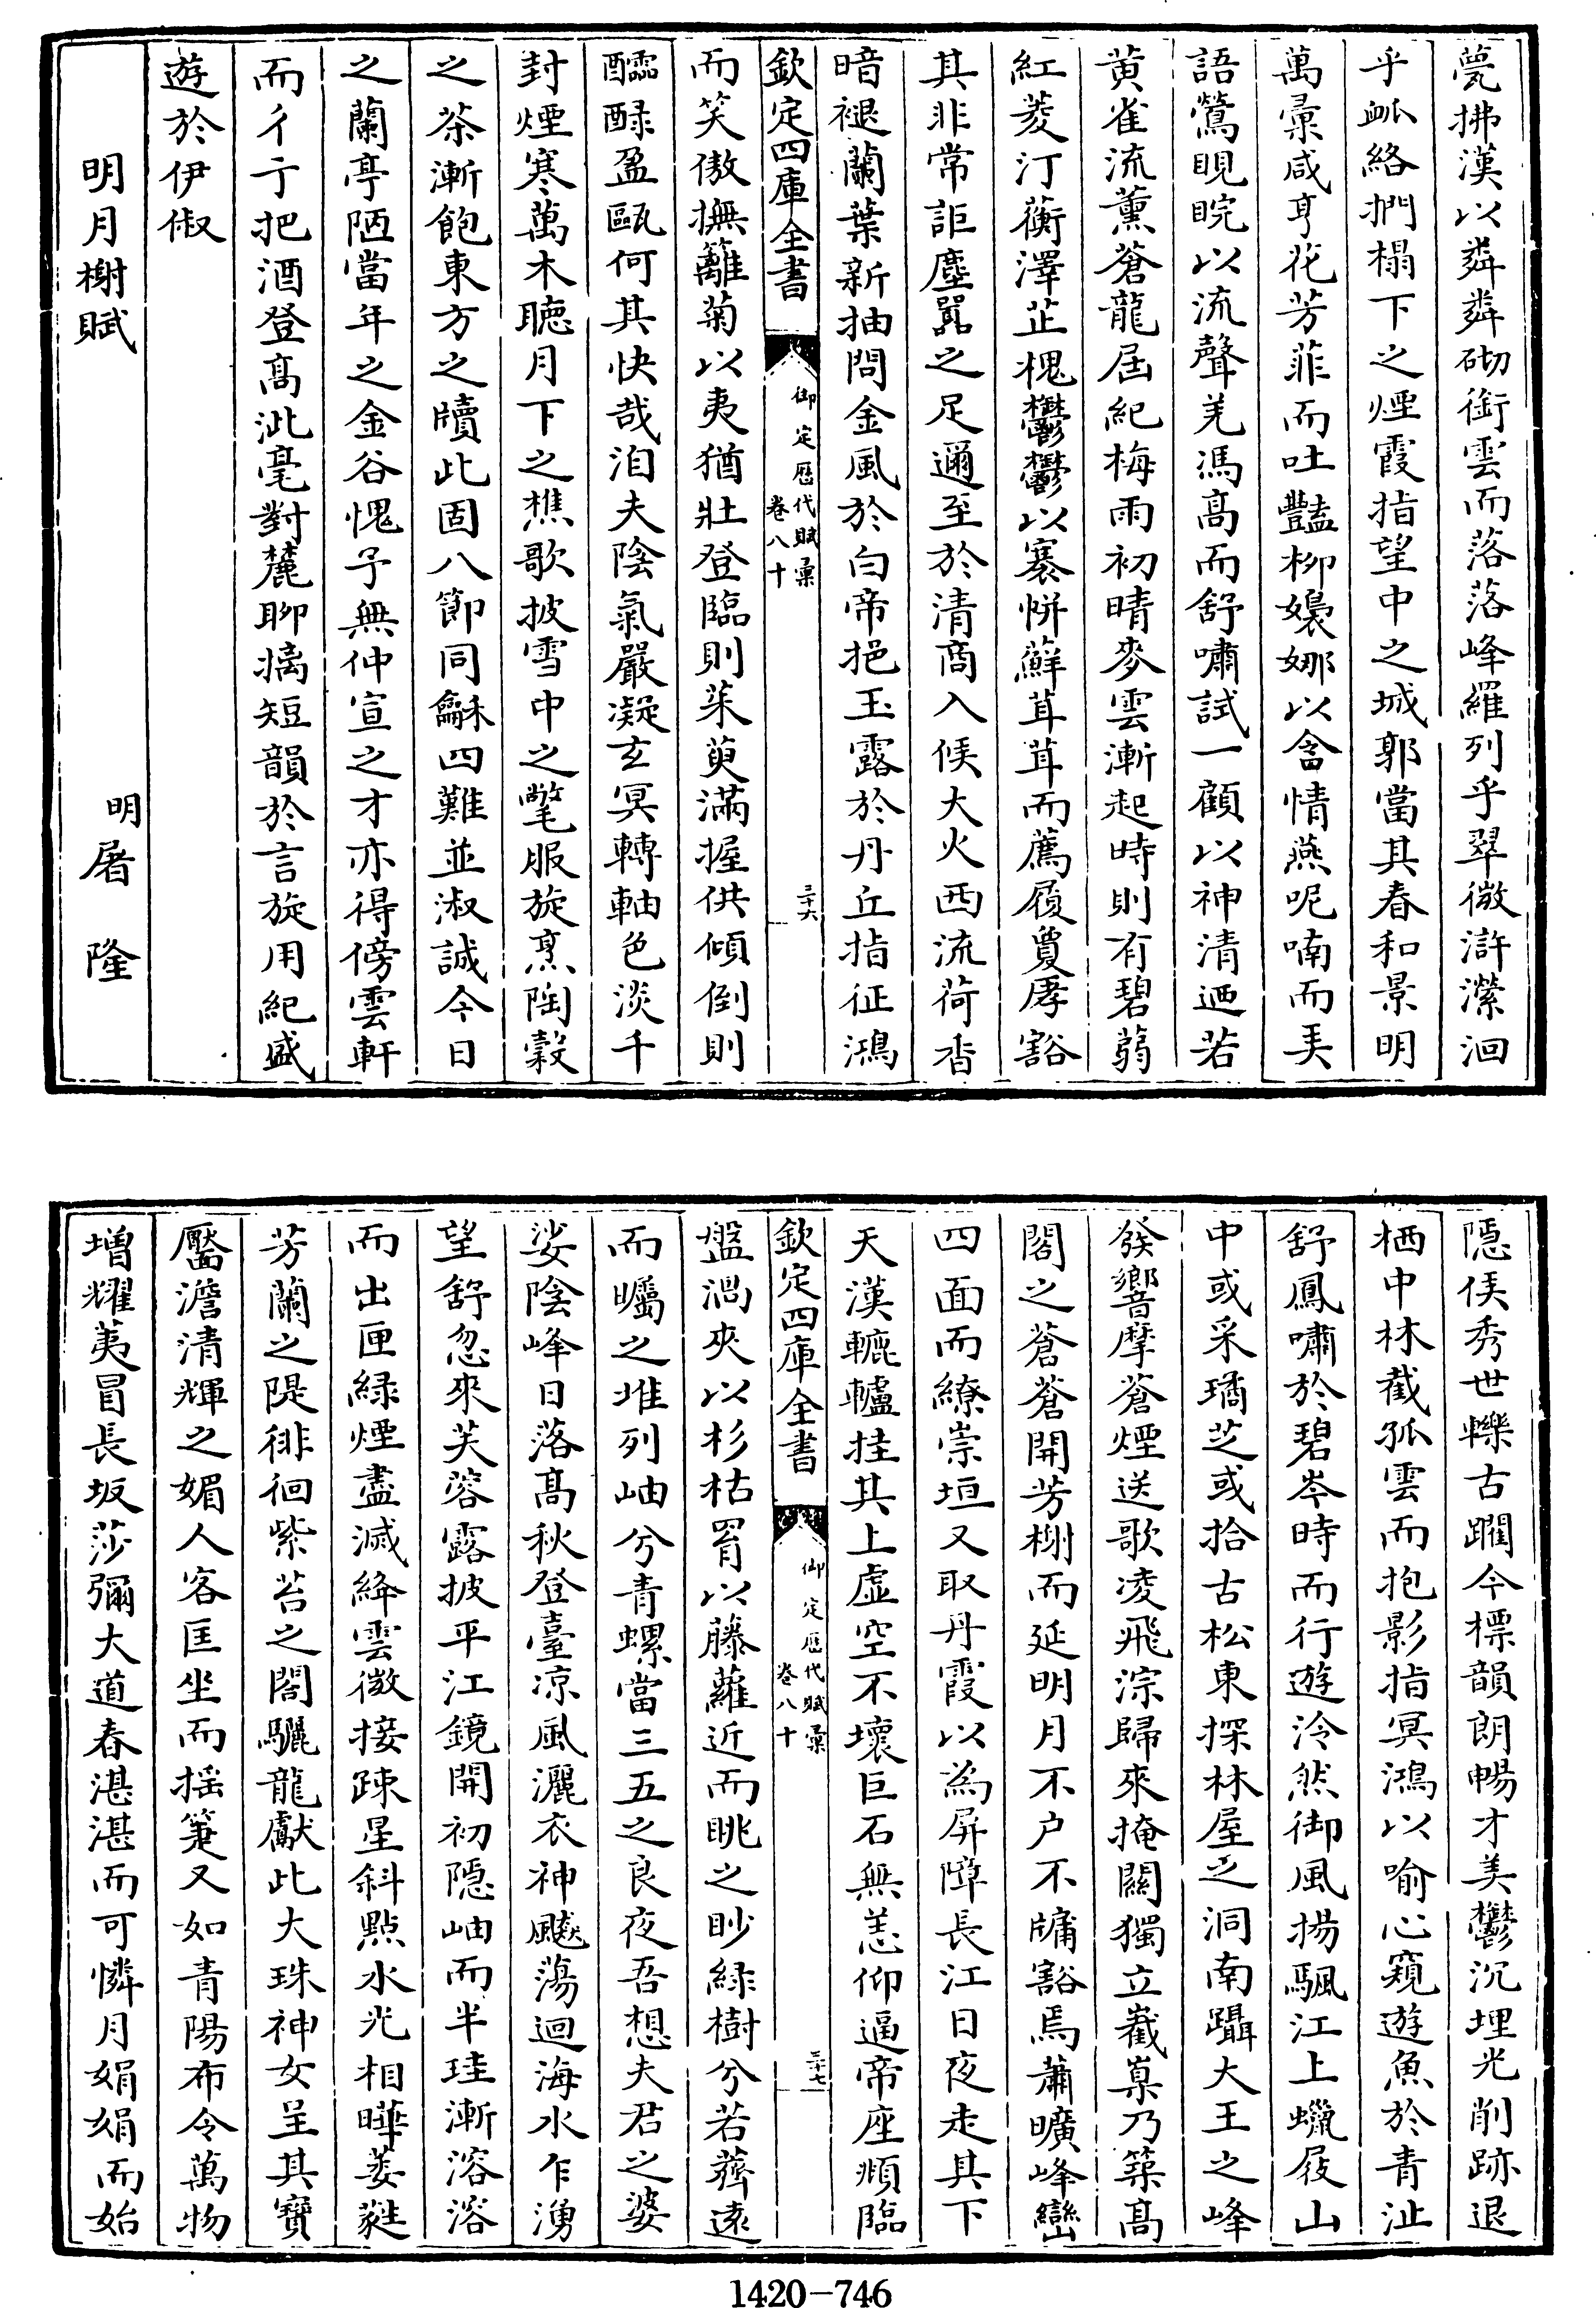 甍拂漢以粦粦砌銜雲而落落峰羅列乎翠微滸瀠洄
乎瓠絡捫榻下之煙霞指望中之城郭當其春和景明
萬彙咸亨花芳菲而吐豔柳嬝娜以含情燕呢喃而美
語鶯睍睆以流聲羌馮高而舒嘯試一顧以神清迺若
黃雀流薰蒼龍屆紀梅雨初晴麥雲漸起時則有碧蒻
紅菱汀蘅澤芷槐鬱鬱以褰帡蘚茸茸而薦履敻㕓豁
其非常詎塵囂之足邇至於清商入候大火西流荷香
暗褪蘭葉新抽問金風於白帝挹玉露於丹丘指征鴻
欽定四庫全書
御定歷代賦彙
卷八十
三十六
而笑傲撫籬菊以夷猶壯登臨則茱萸滿握供傾倒則
醽醁盈甌何其快哉洎夫陰氣嚴凝玄冥轉軸色淡千
封煙寒萬木聽月下之樵歌披雪中之氅服旋烹陶穀
之茶漸飽東方之牘此固八節同龢四難並淑誠今日
之蘭亭陋當年之金谷愧予無仲宣之才亦得傍雲軒
而彳亍把酒登高泚毫對麓聊摛短韻於言旋用紀盛
遊於伊俶
明月榭賦
明屠隆
隱侯秀世轢古躍今標韻朗暢才美鬱沉埋光削跡退
栖中林截孤雲而抱影指冥鴻以喻心窺遊魚於青沚
舒鳳嘯於碧岑時而行遊泠然御風揚颿江上蠟屐山
中或采璚芝或拾古松東探林屋之洞南躡大王之峰
發響摩蒼煙送歌凌飛淙歸來掩關獨立嶻嵲乃築高
閣之蒼蒼開芳榭而延明月不户不牖豁焉蕭曠峰巒
四面而繚崇垣又取丹霞以為屏障長江日夜走其下
天漢轆轤挂其上虛空不壞巨石無恙仰逼帝座頫臨
欽定四庫全書
御定歷代賦彙
卷八十
三十七
盤渦夾以杉枯罥以藤蘿近而眺之眇綠樹兮若薺遠
而矚之堆列岫兮青螺當三五之良夜吾想夫君之婆
娑陰峰日落高秋登臺凉風灑衣神颷蕩迴海水乍湧
望舒忽來芙蓉露披平江鏡開初隱岫而半珪漸溶溶
而出匣綠煙盡滅絳雲微接踈星斜點水光相曄萎蕤
芳蘭之隄徘徊紫苔之閣驪龍獻此大珠神女呈其寶
靨澹清輝之媚人客匡坐而揺箑又如青陽布令萬物
增耀荑冒長坂莎彌大道春湛湛而可憐月娟娟而始
1420-746